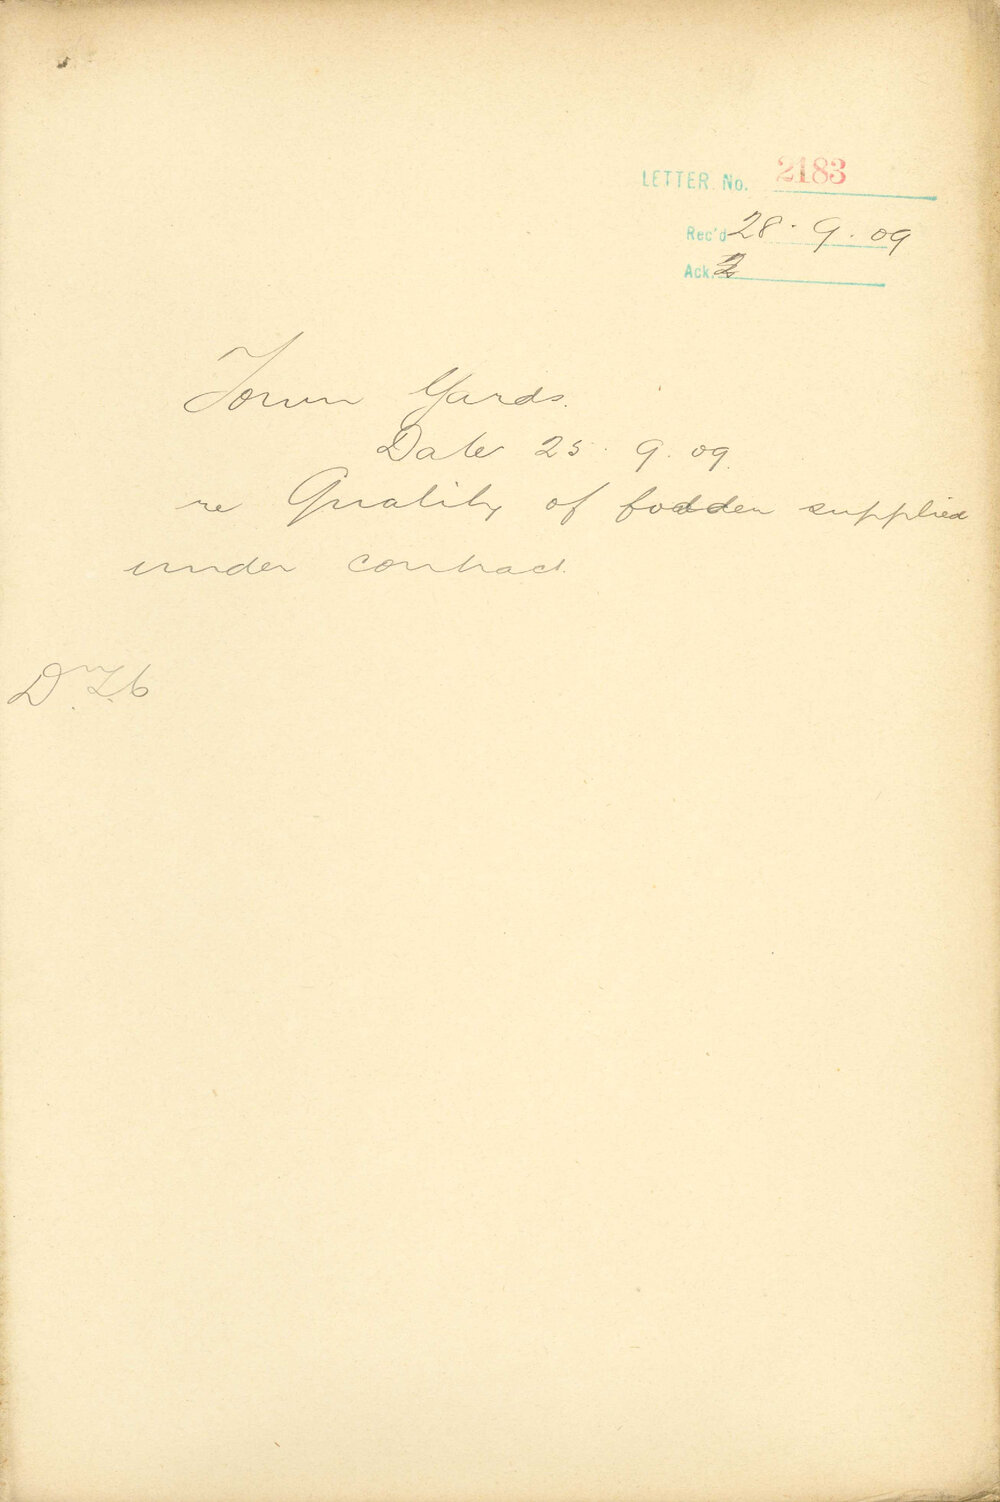 LETTER No. 2183
Rec'd 28.9.09
Ack.
Town Yards.
Date 25.9.09.
re Quality of fodder supplied
under contract.